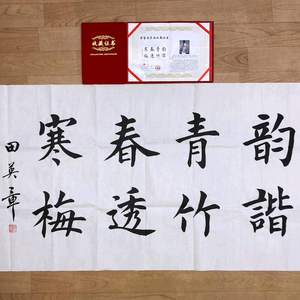 收藏证书
韵諧
青竹
春透
寒梅
田英章